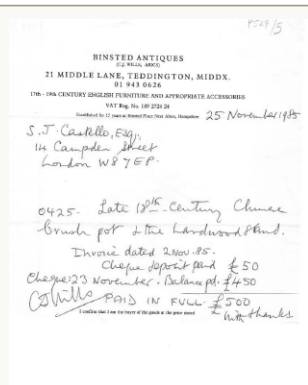 9524/5
BINSTED ANTIQUES
(C.J. WILLS, ARICS)
21 MIDDLE LANE, TEDDINGTON, MIDDX.
01 943 0626
17th - 19th CENTURY ENGLISH FURNITURE AND APPROPRIATE ACCESSORIES
VAT Reg. No. 189 2724 24
Established for 12 years at Binsted Place Near Alton, Hampshire
25 November 1985
S.J. Castello, Esq.,
114 Campden Street
London W8 7EP.
0425. Late 18th Century Chinese
brush pot & the hardwood stand.
Invoice dated 2 Nov. 85.
Cheque deposit paid £50
Cheque: 23 November. Balance pd. £450
CJWills PAID IN FULL. £500
with thanks
I confirm that I am the buyer of the goods at the price stated